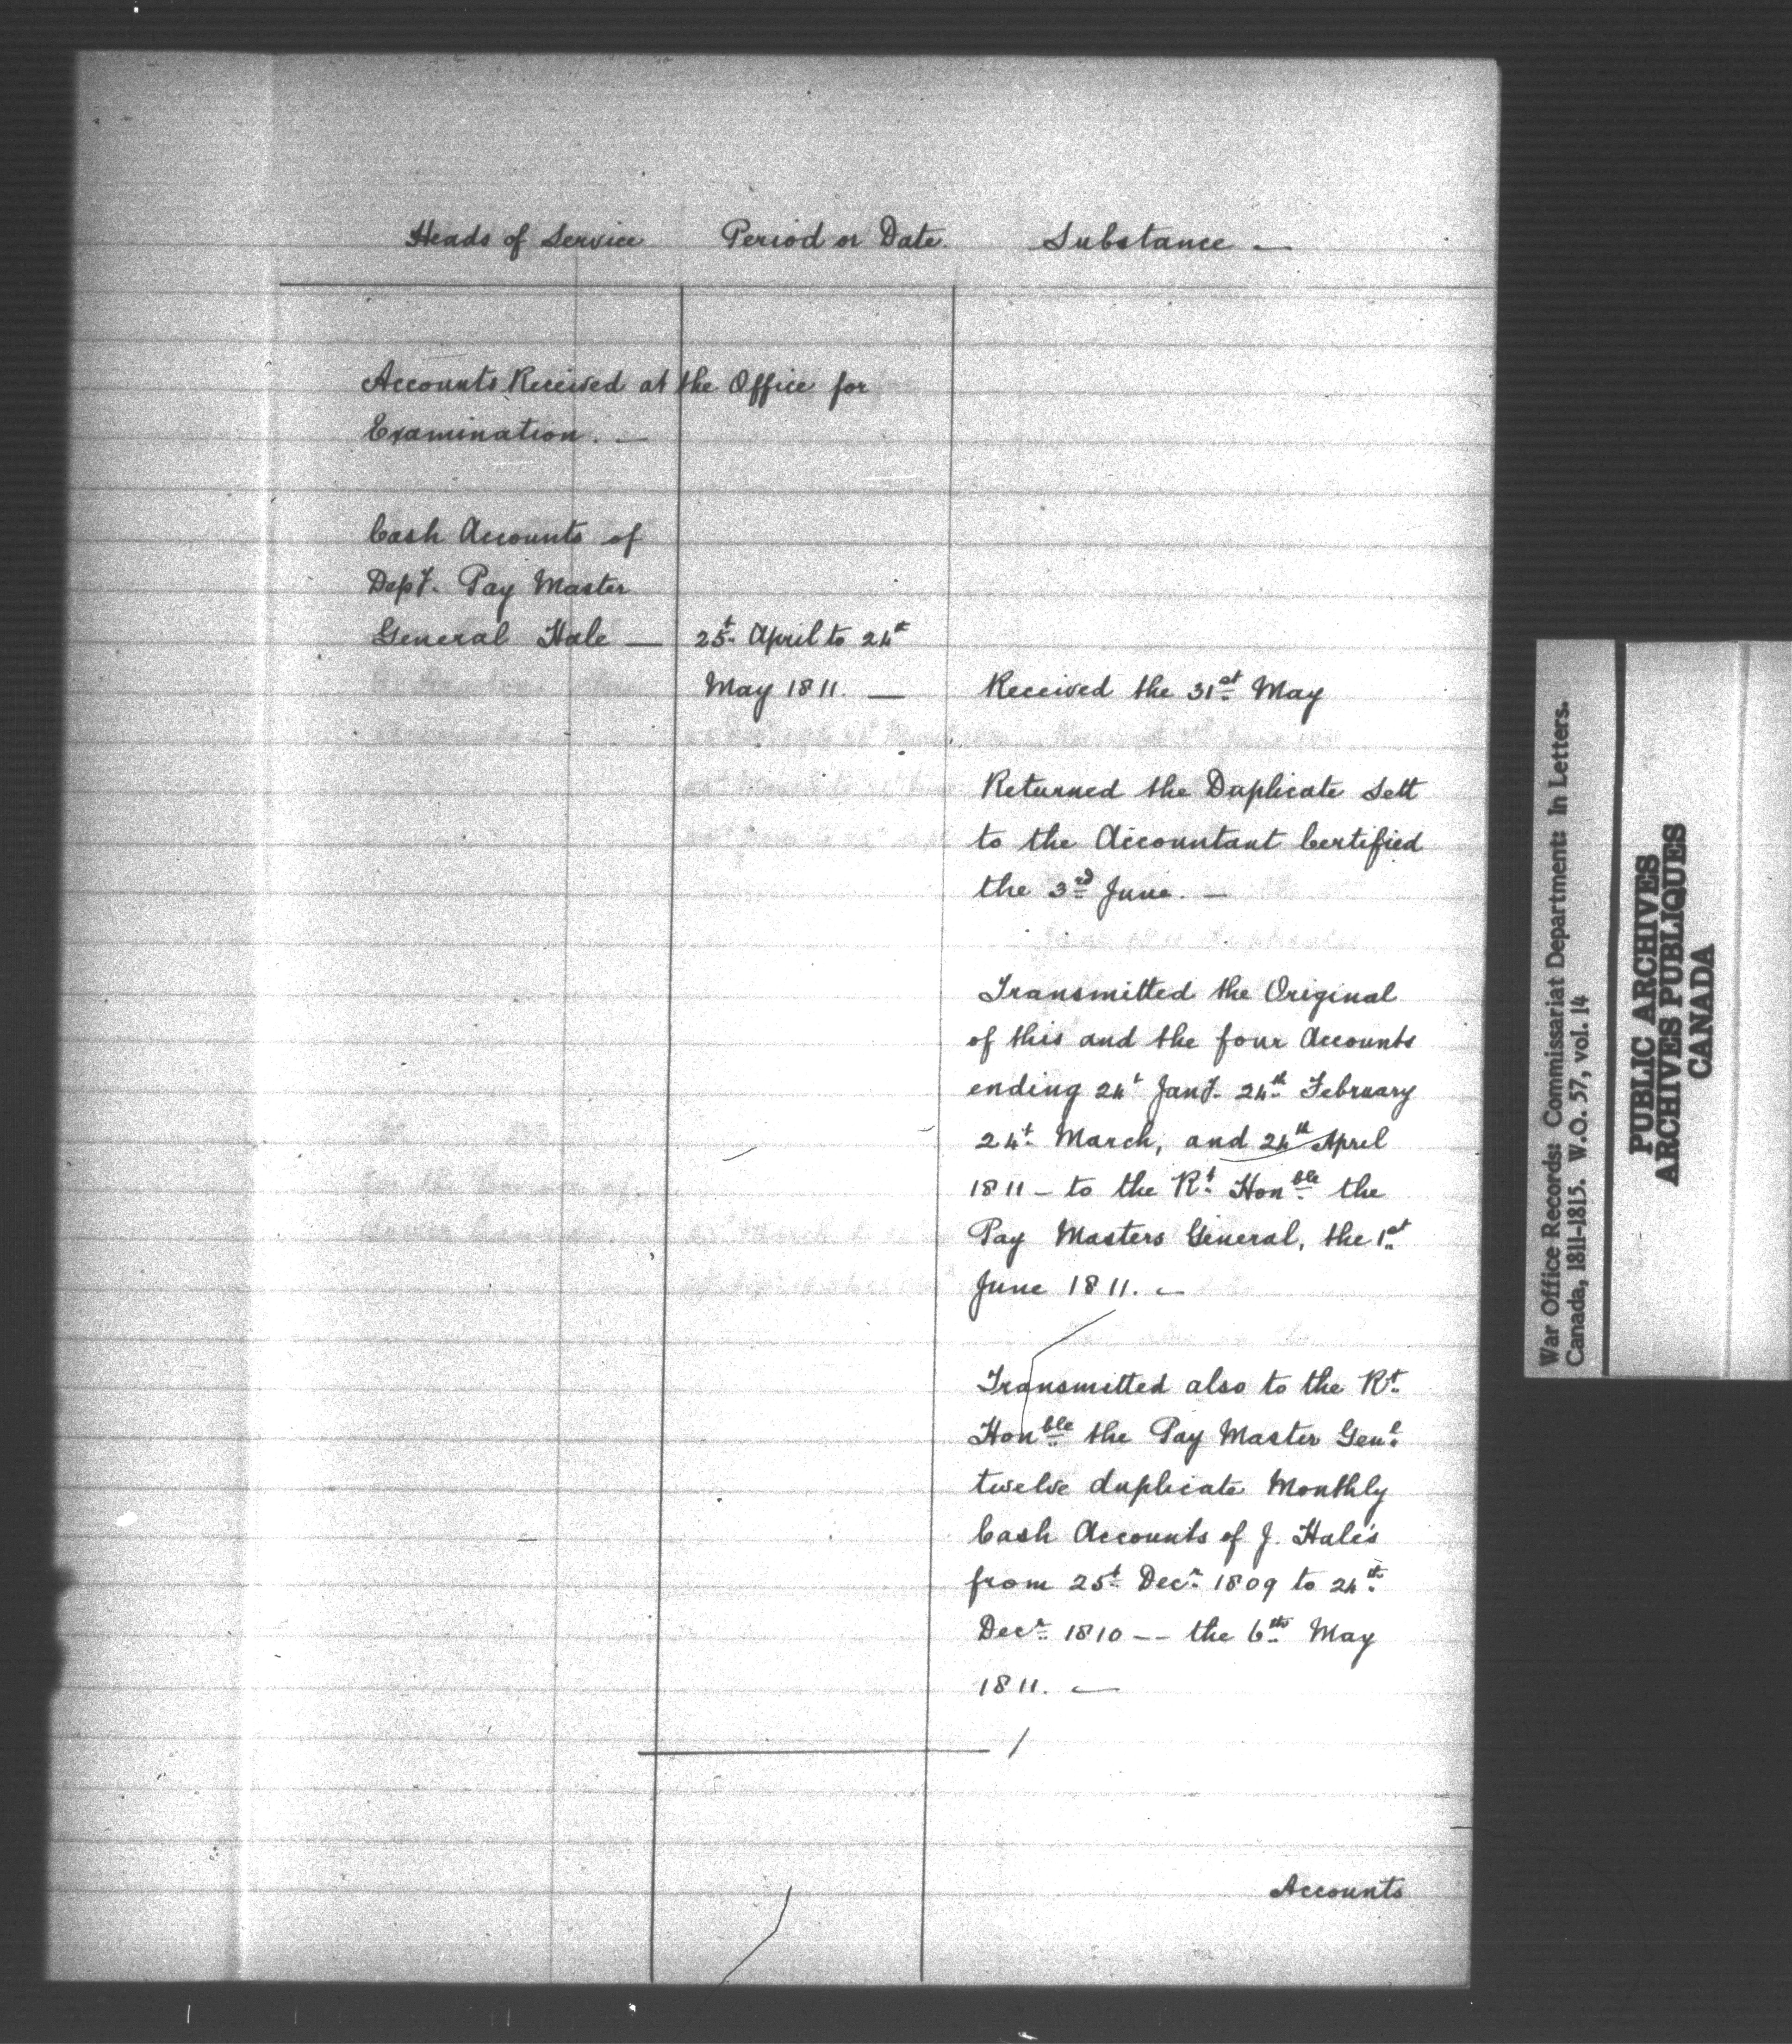 Heads of Service Period or Date. Substance —
Accounts Received at the Office for
Examination. —
Cash Accounts of
Depy. Pay Master
General Hale — 25t. April to 24t
May 1811. — Received the 31st May
Returned the Duplicate Sett
to the Accountant Certified
the 3rd June. —
Transmitted the Original
of this and the four Accounts
ending 24t Jany. 24th February
24t. March, and 24th April
1811 — to the Rt. Honble the
Pay Masters General, the 1st
June 1811. —
Transmitted also to the Rt.
Honble the Pay Master Genl.
twelve duplicate Monthly
Cash Accounts of J. Hale's
from 25t Decr. 1809 to 24th
Decr. 1810 -- the 6th May
1811. —
Accounts
War Office Records: Commissariat Department: In Letters.
Canada, 1811-1815. W.O. 57, vol. 14
PUBLIC ARCHIVES
ARCHIVES PUBLIQUES
CANADA